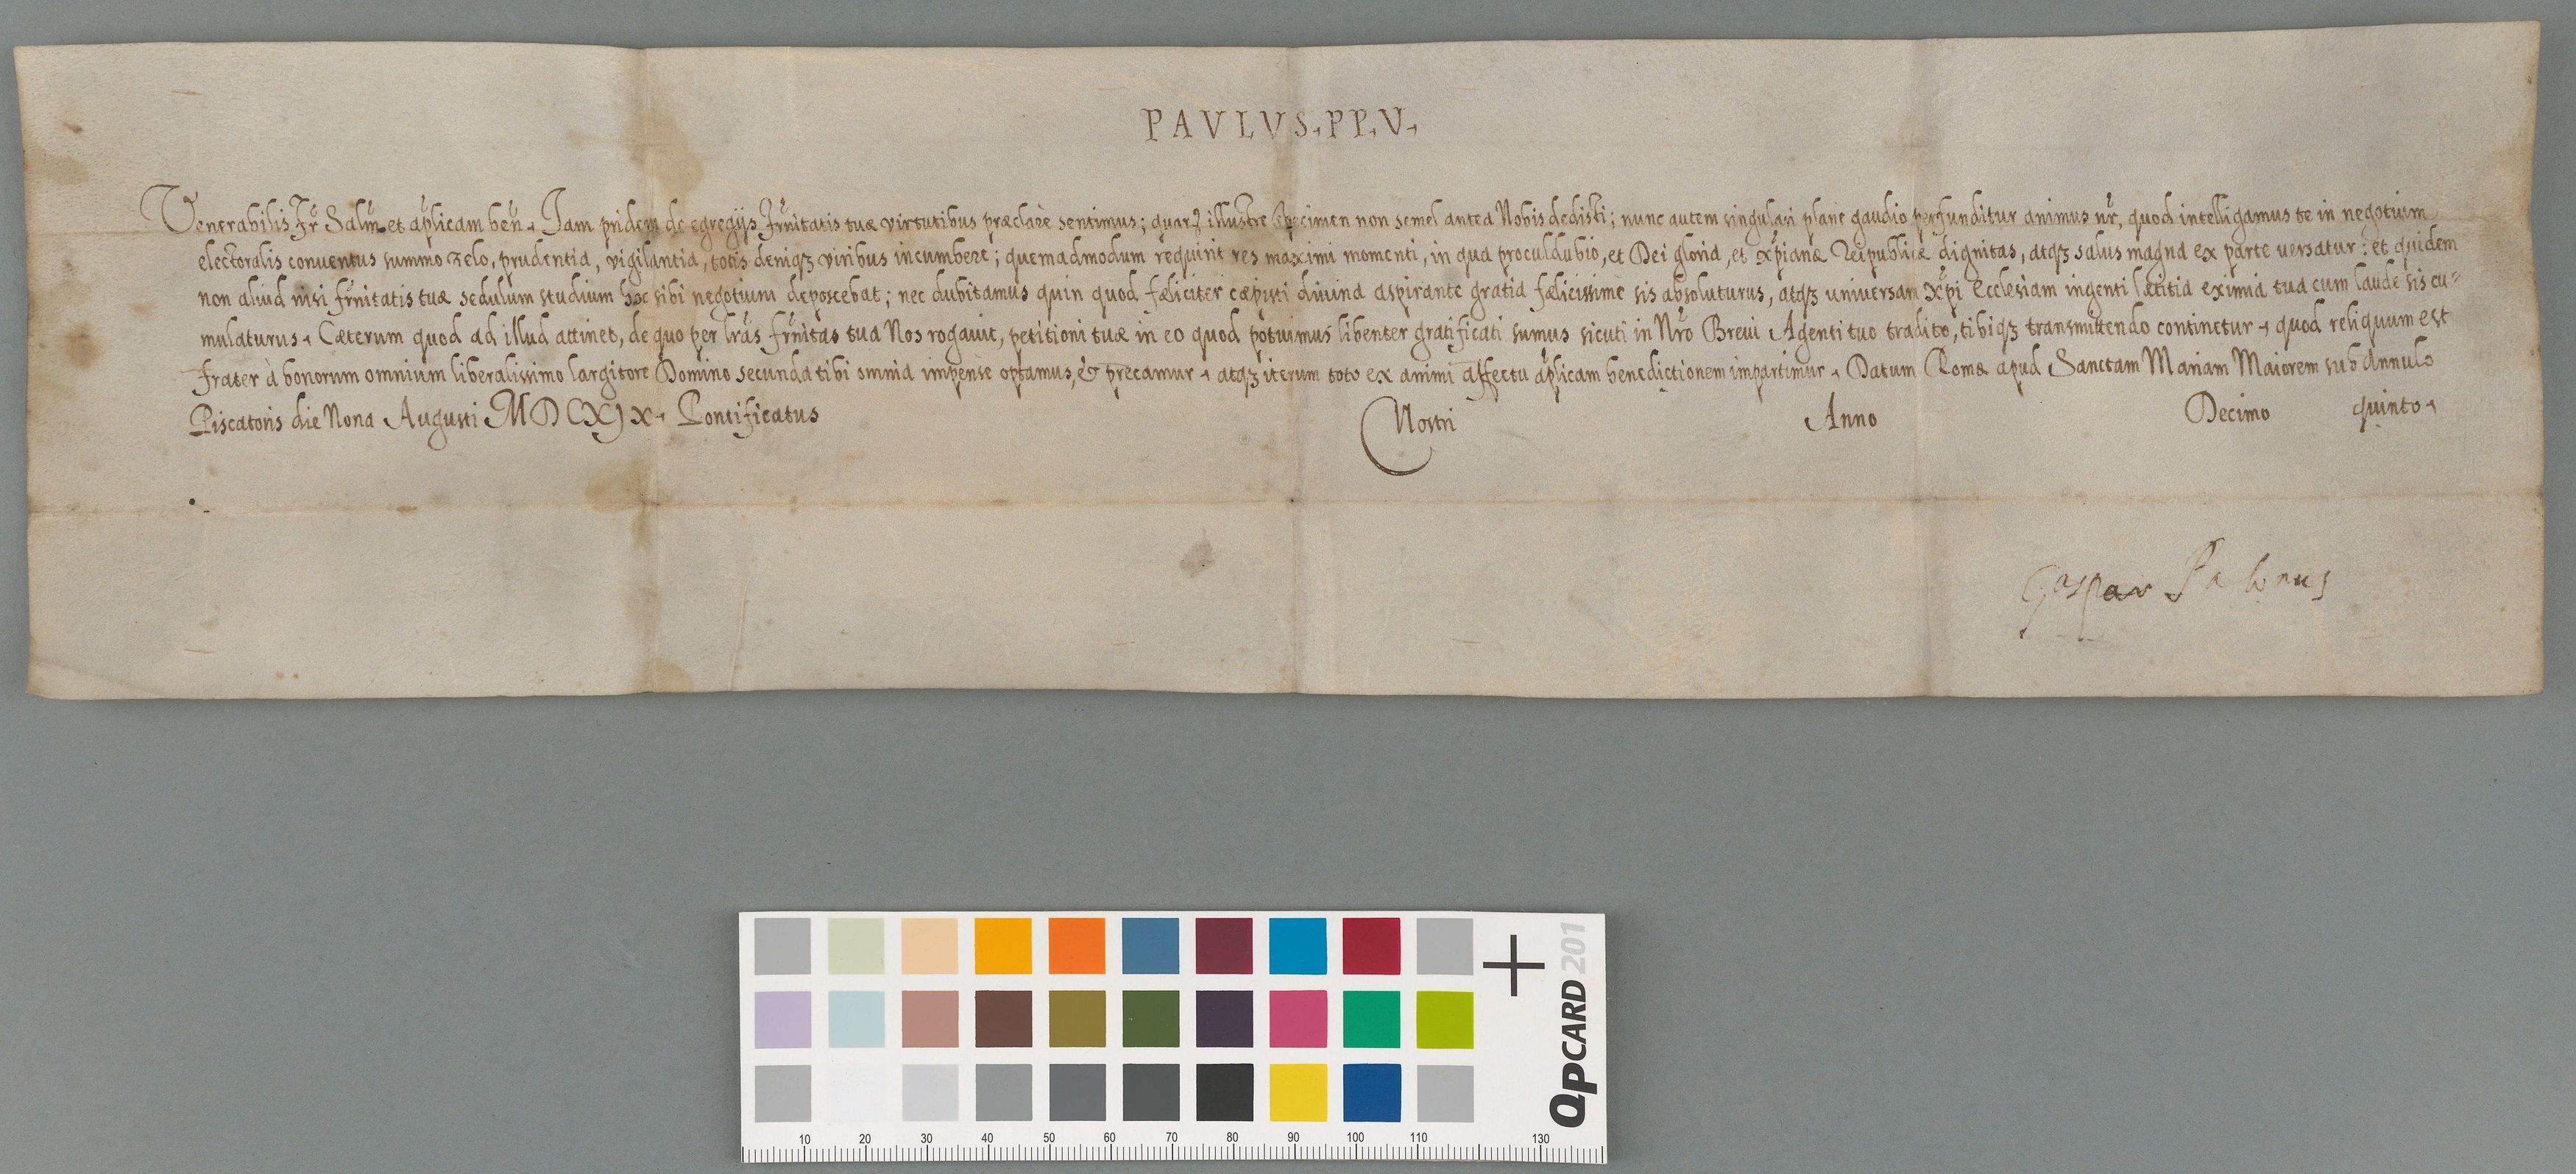 PAVLVS. PP. V.
Venerabilis Fr̃ Salm̃ et ap̃licam ben̄. Iam pridem de egregijs Fr̃nitatis tuæ virtutibus præclarè sentimus; quarꝝ illustre specimen non semel antea Nobis dedisti; nunc autem singulari planè gaudio perfunditur animus nr̃, quod intelligamus te in negotium
electoralis conventus summo zelo, prudentia, vigilantia, totis deniqꝫ viribus incumbere; quemadmodum requirit res maximi momenti, in qua proculdubio, et Dei gloria, et xp̃ianæ Reipublicæ dignitas, atqꝫ salus magna ex parte versatur: et quidem
non aliud nisi fr̃nitatis tuæ sedulum studium hoc sibi negotium deposcebat; nec dubitamus quin quod fæliciter cæpisti divina aspirante gratia fælicissimè sis absoluturus, atqꝫ universam Xp̃i Ecclesiam ingenti lætitia eximia tua cum laude sis cu⸗
mulaturus. Cæterum quod ad illud attinet, de quo per lr̃as fr̃nitas tua Nos rogauit, petitioni tuæ in eo quod potuimus libenter gratificati sumus sicuti in Nr̃o Breui Agenti tuo tradito, tibiqꝫ transmittendo continetur. quod reliquum est
frater à bonorum omnium liberalissimo largitore Domino secunda tibi omnia impensè optamus, & precamur. atqꝫ iterum toto ex animi affectu ap̃licam benedictionem impartimur. Datum Romæ apud Sanctam Mariam Maiorem sub Annulo
Piscatoris die Nona Augusti MDCXIX. Pontificatus Nostri Anno Decimo quinto.
Gaspar Palonus
QPCARD 201
10 20 30 40 50 60 70 80 90 100 110 130